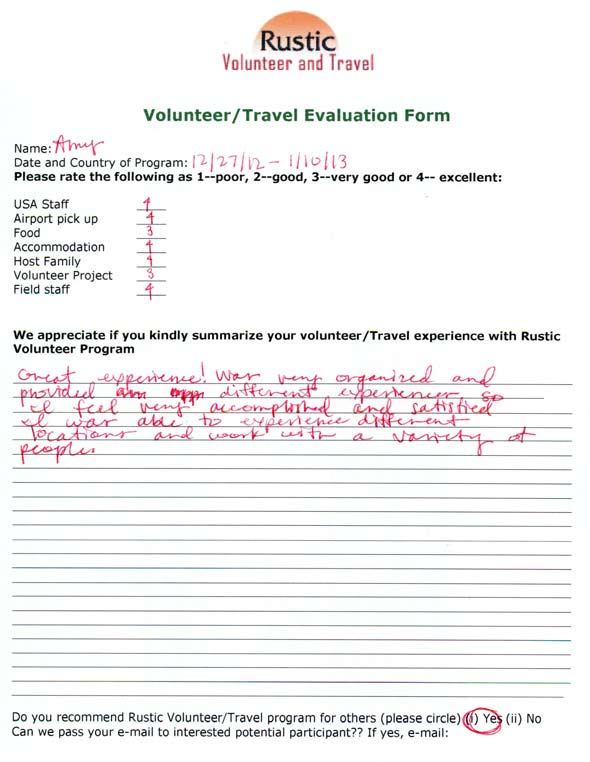 Rustic
Volunteer and Travel
Volunteer/Travel Evaluation Form
Name: Amy
Date and Country of Program: 12/27/12 - 1/10/13
Please rate the following as 1--poor, 2--good, 3--very good or 4-- excellent:
USA Staff 4
Airport pick up 4
Food 3
Accommodation 4
Host Family 4
Volunteer Project 3
Field staff 4
We appreciate if you kindly summarize your volunteer/Travel experience with Rustic
Volunteer Program
Great experience! Was very organized and
provided different experiences so
I feel very accomplished and satisfied
I was able to experience different
locations and work with a variety of
people.
Do you recommend Rustic Volunteer/Travel program for others (please circle) (i) Yes (ii) No
Can we pass your e-mail to interested potential participant?? If yes, e-mail: